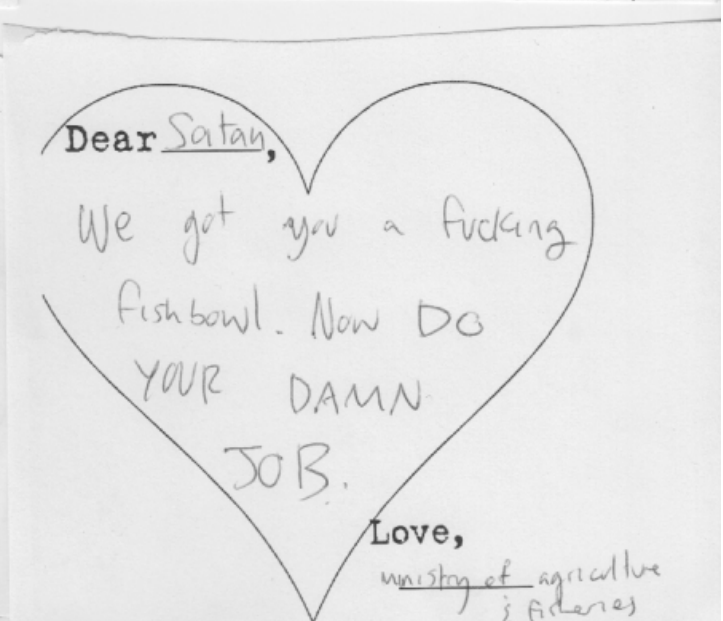 Dear Satan,
We got you a fucking
fishbowl. Now DO
YOUR DAMN
JOB.
Love,
ministry of agriculture
& fisheries